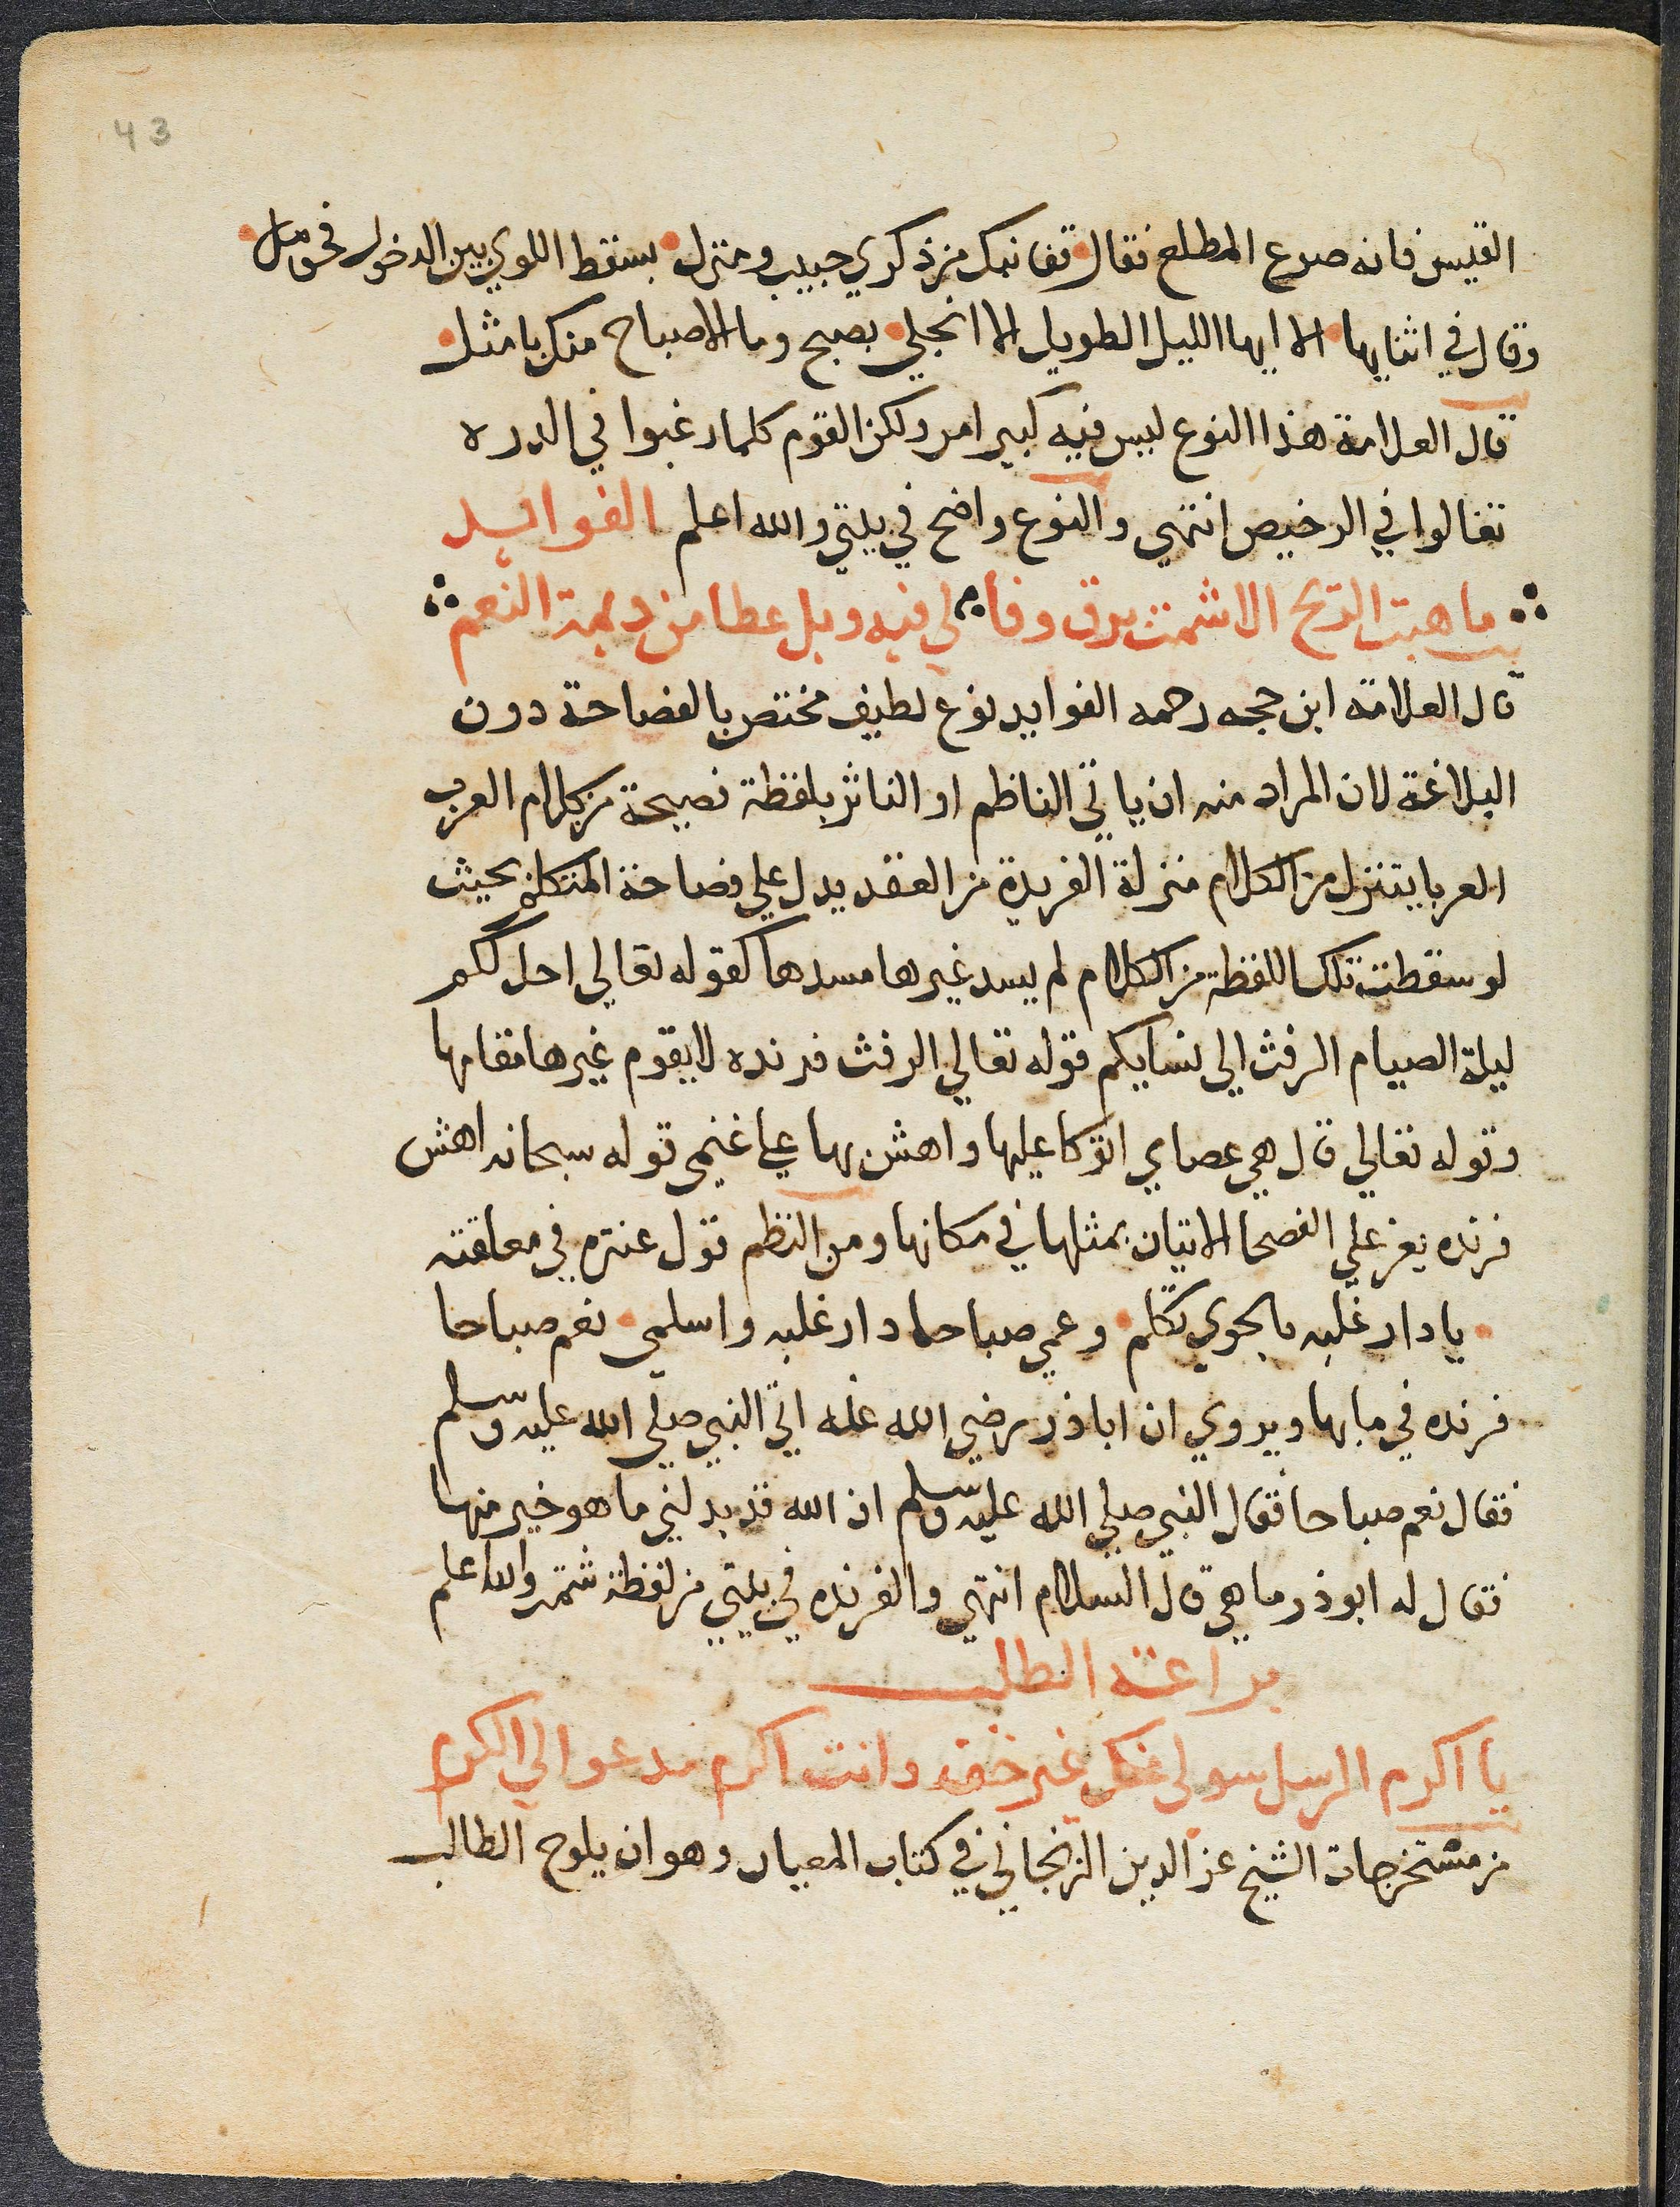 43
القيس فانه صرع المطلع فقال قفا نبك من ذكري حبيب ومنزل بسقط اللوي بين الدخول فحومل
وقال في اثنايها الا ايها الليل الطويل الا انجلي بصبح وما الاصباح منك بامثل
قال العلامة هذا النوع ليس فيه كبير امر ولكن القوم كلما رغبوا في الدره
تغالوا في الرخيص انتهي والنوع واضح في بيتي والله اعلم الفوايد
ما هبت الريح الا شمت برق وفا لي فيه وبل عطا من ديمة النعم
قال العلامة ابن حجه رحمه الفوايد نوع لطيف مختص بالفصاحة دون
البلاغة لان المراد منه ان ياتي الناظم او الناثر بلفظة فصيحة من كلام العرب
العربا يتنزل من الكلام منزلة الفريدة من العقد يدل علي فصاحة المتكلم بحيث
لو سقطت تلك اللفظة من الكلام لم يسد غيرها مسدها كقوله تعالي احل لكم
ليلة الصيام الرفث الي نسايكم قوله تعالي الرفث فرنده لا يقوم غيرها مقامها
وقوله تعالي قال هي عصاي اتوكا عليها واهش بها علي غنمي قوله سبحانه اهش
فرنده يعز علي الفصحا الاتيان بمثلها في مكانها ومن النظم قول عنتره في معلقته
يا دار عبله بالجوي تكلم وعمي صباحا دار عبله واسلمي نعم صباحا
فرنده في بابها ويروي ان اباذر رضي الله عنه اتي النبي صلي الله عليه وسلم
فقال نعم صباحا فقال النبي صلي الله عليه وسلم ان الله قد بدلني ما هو خير منها
فقال له ابوذر ما هي قال السلام انتهي والفرنده في بيتي من لفظة شمت والله اعلم
براعة الطلب
يا اكرم الرسل سولي عنك غير خف وانت اكرم مدعو الي الكرم
من مستخرجات الشيخ عز الدين الزنجاني في كتاب المعيار وهو ان يلوح الطالب